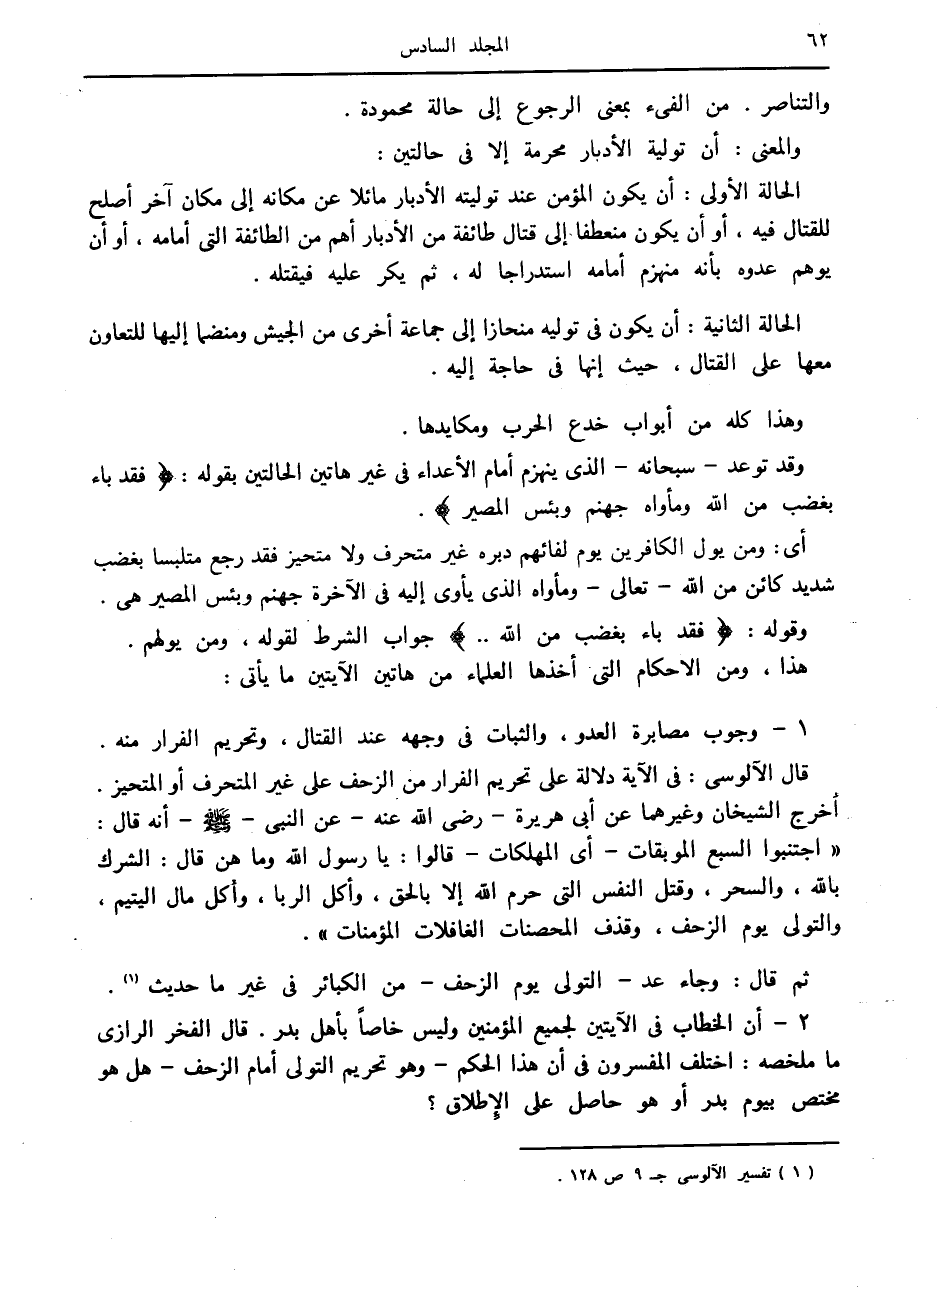 ٦٢
المجلد السادس
والتناصر . من الفىء بمعنى الرجوع إلى حالة محمودة .
والمعنى : أن تولية الأدبار محرمة إلا فى حالتين :
الحالة الأولى : أن يكون المؤمن عند توليته الأدبار مائلا عن مكانه إلى مكان آخر أصلح
للقتال فيه ، أو أن يكون منعطفا إلى قتال طائفة من الأدبار أهم من الطائفة التى أمامه ، أو أن
يوهم عدوه بأنه منهزم أمامه استدراجا له ، ثم يكر عليه فيقتله .
الحالة الثانية : أن يكون فى توليه منحازا إلى جماعة أخرى من الجيش ومنضما إليها للتعاون
معها على القتال ، حيث إنها فى حاجة إليه .
وهذا كله من أبواب خدع الحرب ومكايدها .
وقد توعد – سبحانه – الذى ينهزم أمام الأعداء فى غير هاتين الحالتين بقوله : ﴿ فقد باء
بغضب من الله ومأواه جهنم وبئس المصير ﴾ .
أى : ومن يول الكافرين يوم لفائهم دبره غير متحرف ولا متحيز فقد رجع متلبسا بغضب
شديد كائن من الله – تعالى – ومأواه الذى يأوى إليه فى الآخرة جهنم وبئس المصير هى .
وقوله : ﴿ فقد باء بغضب من الله .. ﴾ جواب الشرط لقوله ، ومن يولهم .
هذا ، ومن الاحكام التى أخذها العلماء من هاتين الآيتين ما يأتى :
١ – وجوب مصابرة العدو ، والثبات فى وجهه عند القتال ، وتحريم الفرار منه .
قال الآلوسى : فى الآية دلالة على تحريم الفرار من الزحف على غير المتحرف أو المتحيز .
أخرج الشيخان وغيرهما عن أبى هريرة – رضى الله عنه – عن النبى – ﷺ – أنه قال :
« اجتنبوا السبع الموبقات – أى المهلكات – قالوا : يا رسول الله وما هن قال : الشرك
بالله ، والسحر ، وقتل النفس التى حرم الله إلا بالحق ، وأكل الربا ، وأكل مال اليتيم ،
والتولى يوم الزحف ، وقذف المحصنات الغافلات المؤمنات » .
ثم قال : وجاء عد – التولى يوم الزحف – من الكبائر فى غير ما حديث (١) .
٢ – أن الخطاب فى الآيتين لجميع المؤمنين وليس خاصاً بأهل بدر . قال الفخر الرازى
ما ملخصه : اختلف المفسرون فى أن هذا الحكم – وهو تحريم التولى أمام الزحف – هل هو
مختص بيوم بدر أو هو حاصل على الإطلاق ؟
( ١ ) تفسير الآلوسى جـ ٩ ص ١٢٨ .